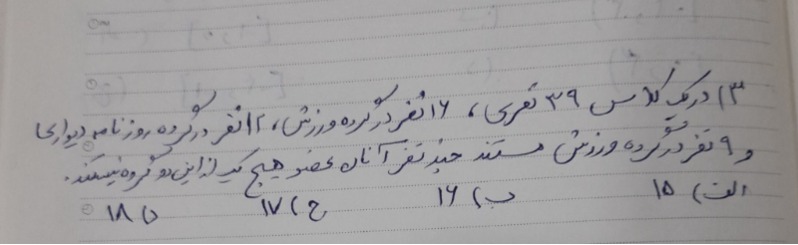 ۳) در یک کلاس ۳۹ نفری ، ۱۶ نفر در گروه ورزش ، ۱۲ نفر در گروه روزنامه دیواری
و ۹ نفر در گروه ورزش هستند چند نفر آنان عضو هیچ یک از این دو گروه نیستند.
الف) ۱۵ ب) ۱۶ ج) ۱۷ د) ۱۸